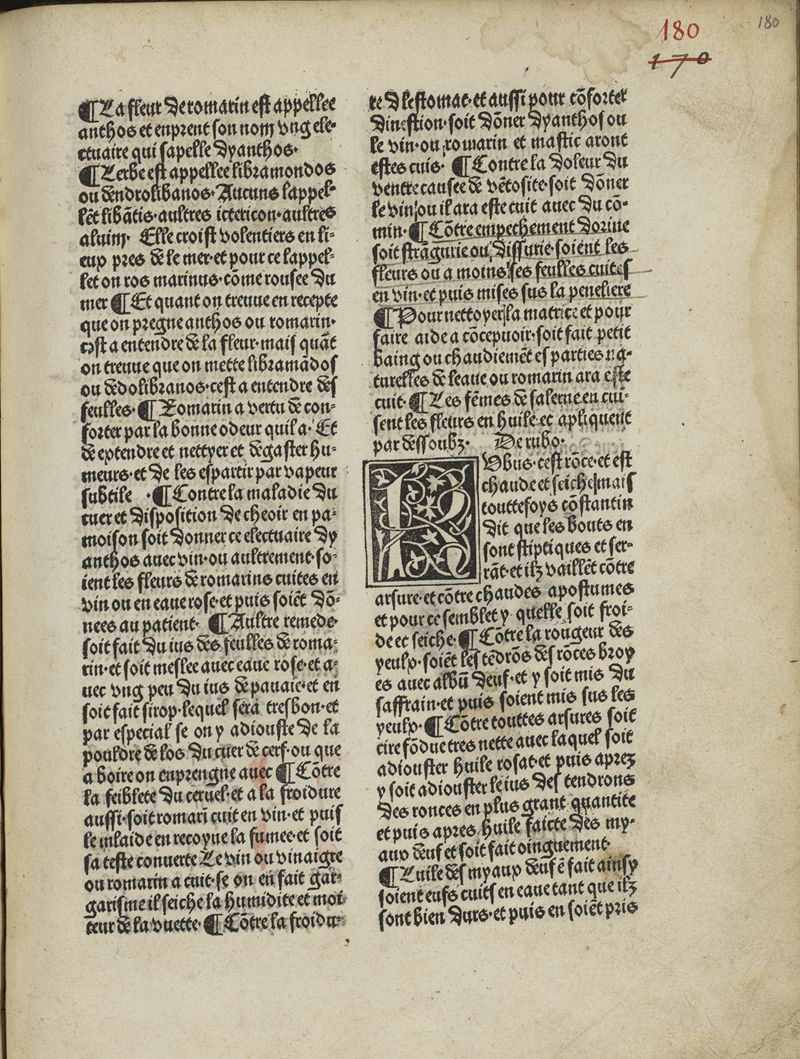 180
180
170
¶La fleur de romarin est appellee
anthos et enprent son nom vng ele-
ctuaire qui sapelle dyanthos.
¶Lerbe est appellee libramondos
ou dendrolibanos. Aucuns lappel-
lēt libātis. aultres ictericon. aultres
aluim. Elle croist volentiers en li-
eux pres de le mer. et pour ce lappel-
let on ros marinus. cōme rousee du
mer ¶Et quant on treuue en recepte
que on pregne anthos ou romarin.
cest a entendre de la fleur. mais quāt
on treuue que on mette libramādos
ou dēdolibranos. cest a entendre des
feulles. ¶Romarin a vertu de con-
forter par la bonne odeur quil a. Et
de extendre et nettyer et degaster hu-
meurs. et de les espartir par vapeur
subtile . ¶Contre la maladie du
cuer et disposition de cheoir en pa-
moison soit donner ce electuaire dy
anthos auec vin. ou aultrement. so-
ient les fleurs de romarins cuites en
vin ou en eaue rose. et puis soiēt dō-
nees au patient. ¶Aultre remede.
soit fait du ius des feulles de roma-
rin. et soit meslee auec eaue rose. et a-
uec vng peu du ius de pauaie. et en
soit fait sirop. lequel sera tresbon. et
par especial se on y adiouste de la
pouldre de los du cuer de cerf. ou que
a boire on enprengne auec ¶Cōtre
la feiblete du ceruel. et a la froidure
aussi. soit romari cuit en vin. et puis
le mlaide en recoyue la fumee. et soit
sa teste conuerte Le vin ou vinaigre
ou romarin a cuit. se on en fait gar-
garisme il seiche la humidite et moi
teur de la vuette. ¶Cōtre la froidu-
re d lestomac. et aussi pour cōforter
dinestion. soit dōner dyanthos ou
le vin. ou romarin et mastic aront
estes cuis. ¶Contre la doleur du
ventre causee de vētosite. soit dōner
le vin ou il ara este cuit auec du cō-
min. ¶Cōtre empechement dorine
soit strāgurie ou dissurie. soient les
fleurs ou a moins ses feulles cuites
en vin. et puis mises sus la peneliere
¶Pour nettoyer la matrice et pour
faire aide a cōcepuoir. soit fait petit
baing ou chaudiemēt es parties na-
turelles de leaue ou romarin ara este
cuit. ¶Les fēmes de salerne en cui-
sent les fleurs en huile et apliquent
par dessoubz. De rubo.
RVbus. cest rōce. et est
chaude et seiche mais
touttefoys cōstantin
dit que les bouts en
sont stiptiques et ser-
rāt. et ilz vaillēt cōtre
arsure. et cōtre chaudes apostumes
et pour ce semblet y quelle soit froi-
de et seiche. ¶Cōtre la rougeur des
yeulx. soiēt les tēdrōs des rōces broy
es auec albū deuf. et y soit mis du
saffrain. et puis soient mis sus les
yeulx. ¶Cōtre touttes arsures soit
cire fōdue tres nette auec laquel soit
adiouster huile rosat. et puis aprez
y soit adiouster le ius des tendrons
des ronces en plus grant quantite
et puis apres huile faicte des my-
aux deuf et soit fait oinguement.
¶Luile des myaux deuf ē fait ainsy
soient eufs cuits en eaue tant que ilz
sont bien durs. et puis en soiēt pris